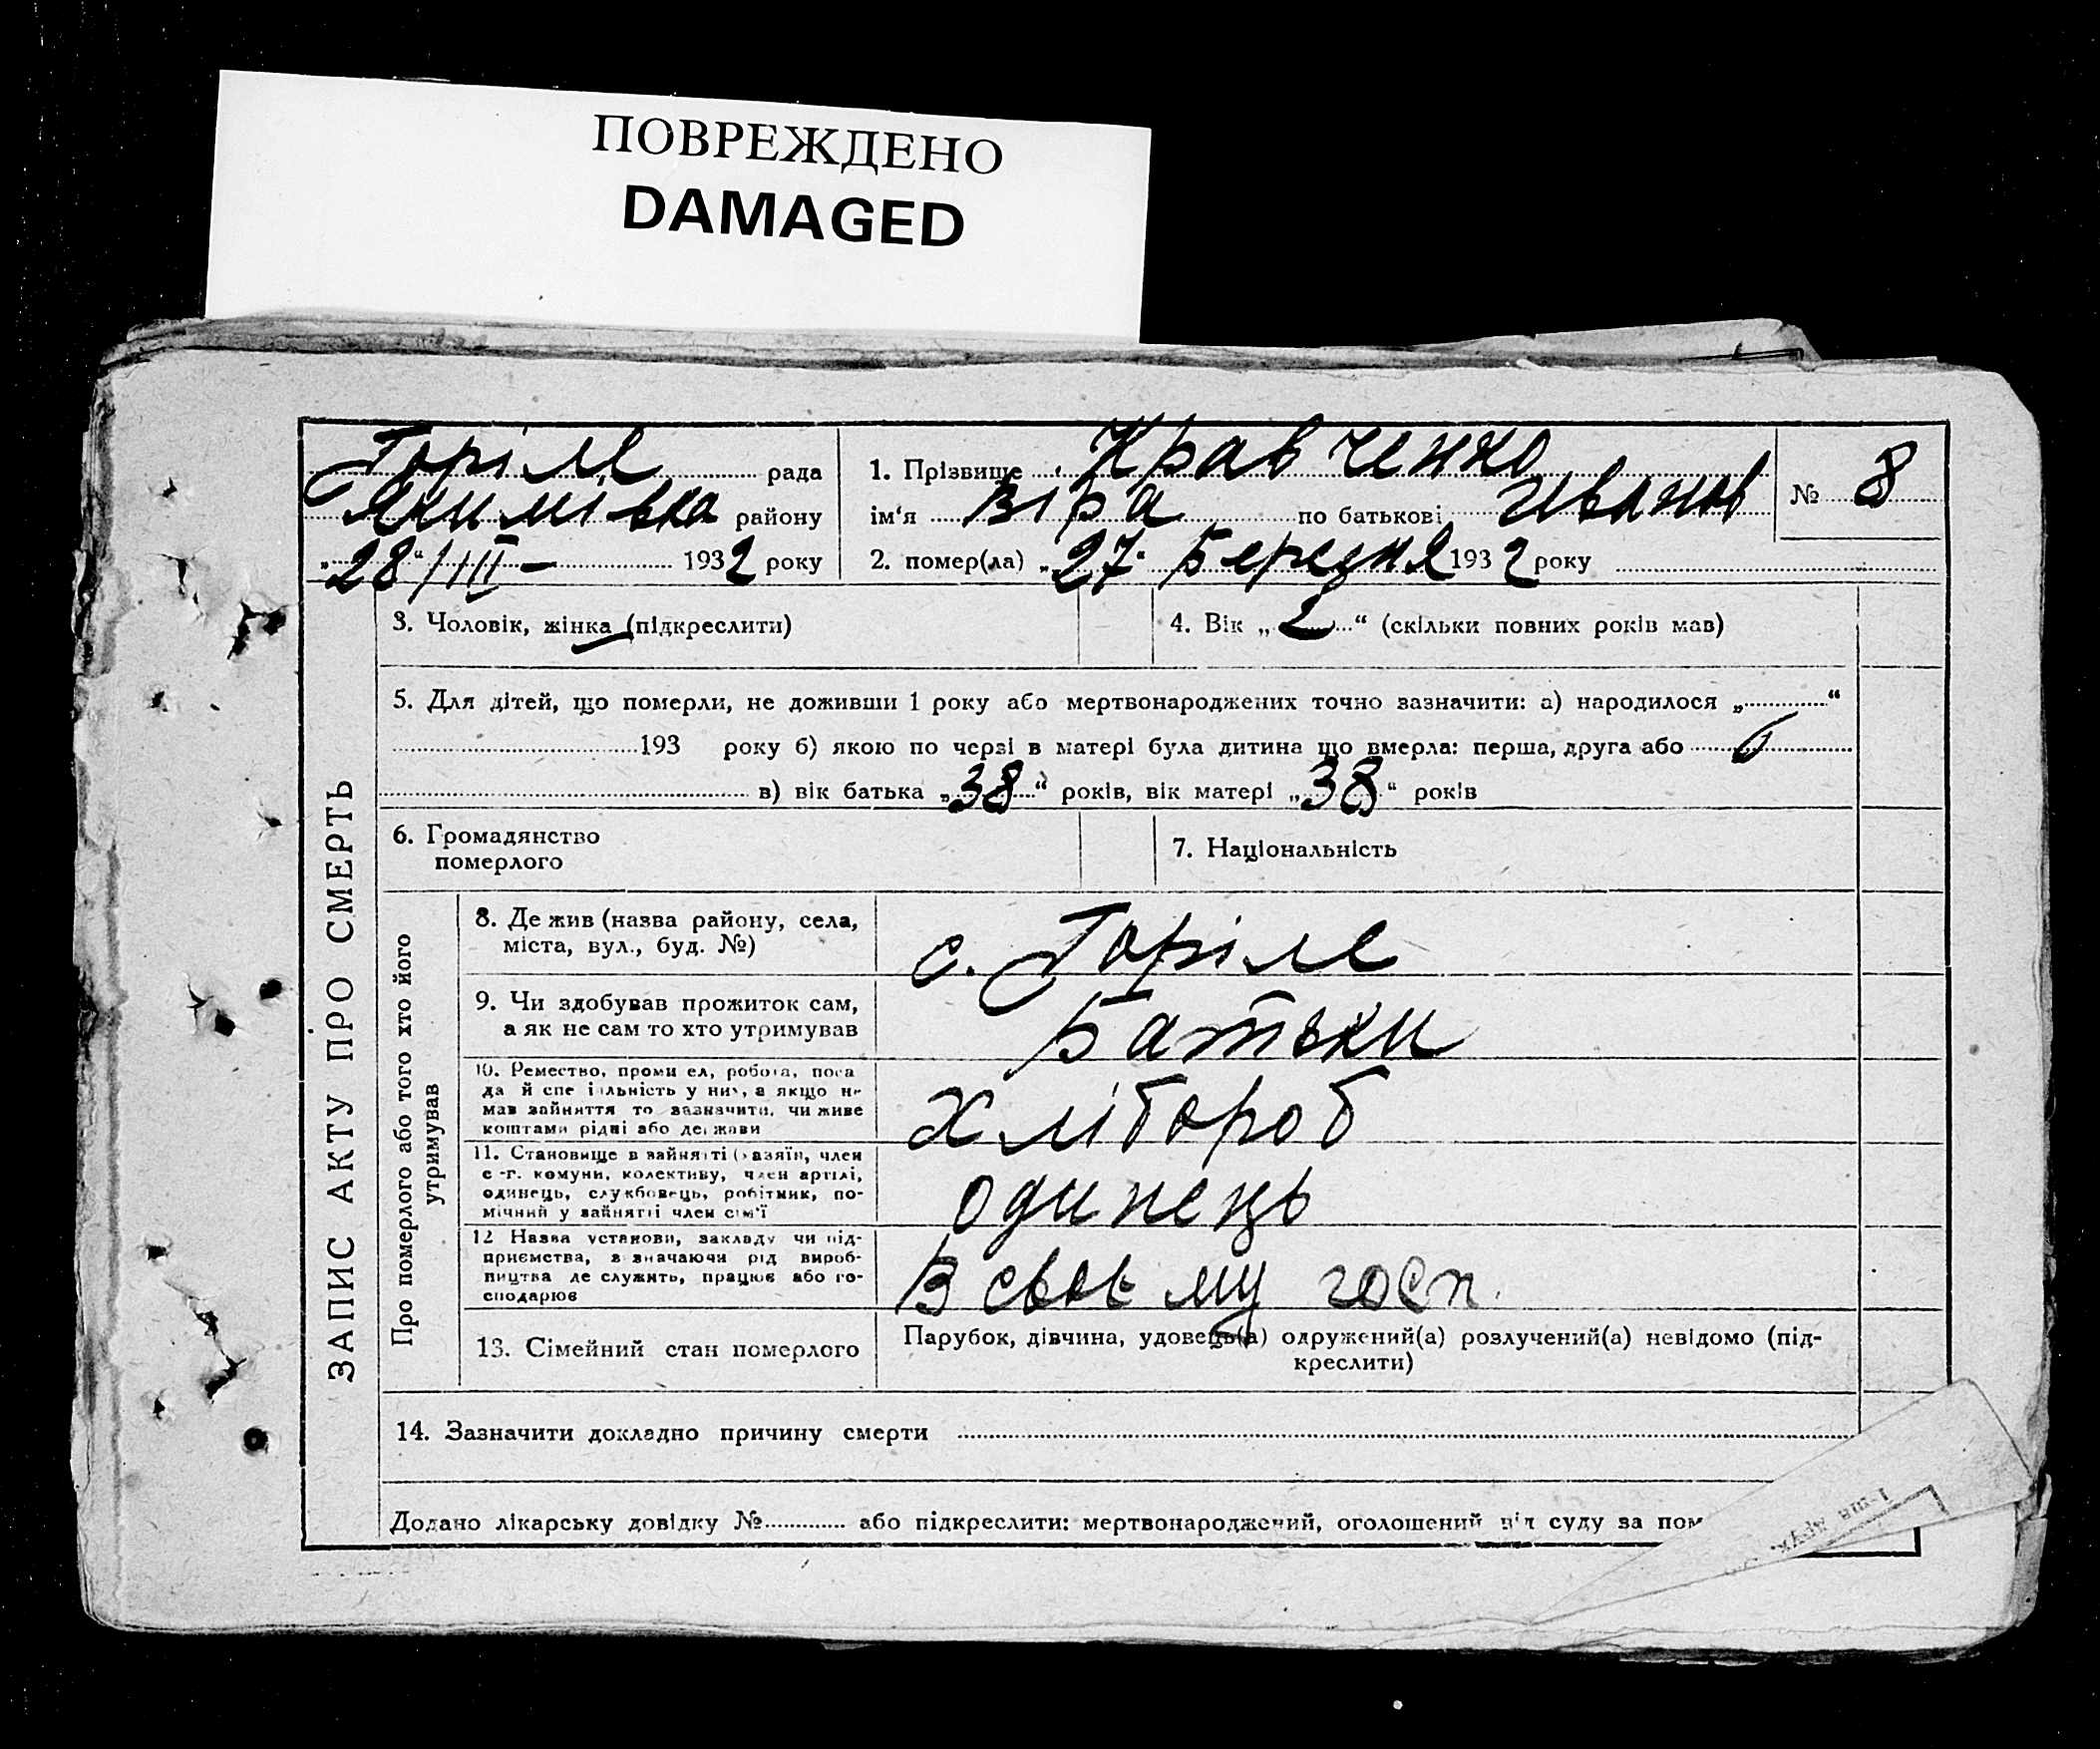 ПОВРЕЖДЕНО
DAMAGED
Горіле рада
Якимівка району
„28“/III – 1932 року
1. Прізвище Кравченко
ім'я Віра по батькові Иванов
2. помер(ла) „27 Березня 1932 року
№ 8
3. Чоловік, жінка (підкреслити)
4. Вік „2“ (скільки повних років мав)
5. Для дітей, що померли, не доживши 1 року або мертвонароджених точно зазначити: а) народилося „ “
193 року б) якою по черзі в матері була дитина що вмерла: перша, друга або 6
в) вік батька „38“ років, вік матері „38“ років
6. Громадянство
померлого
7. Національність
ЗАПИС АКТУ ПРО СМЕРТЬ
Про померлого або того хто його
утримував
8. Де жив (назва району, села,
міста, вул., буд. №)
с. Горіле
9. Чи здобував прожиток сам,
а як не сам то хто утримував
Батьки
10. Ремество, проми ел, робота, поса
да й спе і альність у них, а якщо не
мав зайняття то зазначити, чи живе
коштами рідні або держави
Хлібороб
11. Становище в занятті (хазяїн, член
с -г. комуни, колективу, член артілі,
одинець, службовець, робітник, по-
мічний у занятті член сім'ї
одинець
12 Назва установи, закладу чи під-
приємства, з значаючи рід вироб-
ництва де служить, працює або го-
сподарює
В своєму госп.
13. Сімейний стан померлого
Парубок, дівчина, удовець(а) одружений(а) розлучений(а) невідомо (під-
креслити)
14. Зазначити докладно причину смерти
Додано лікарську довідку № або підкреслити: мертвонароджений, оголошений від суду за пом